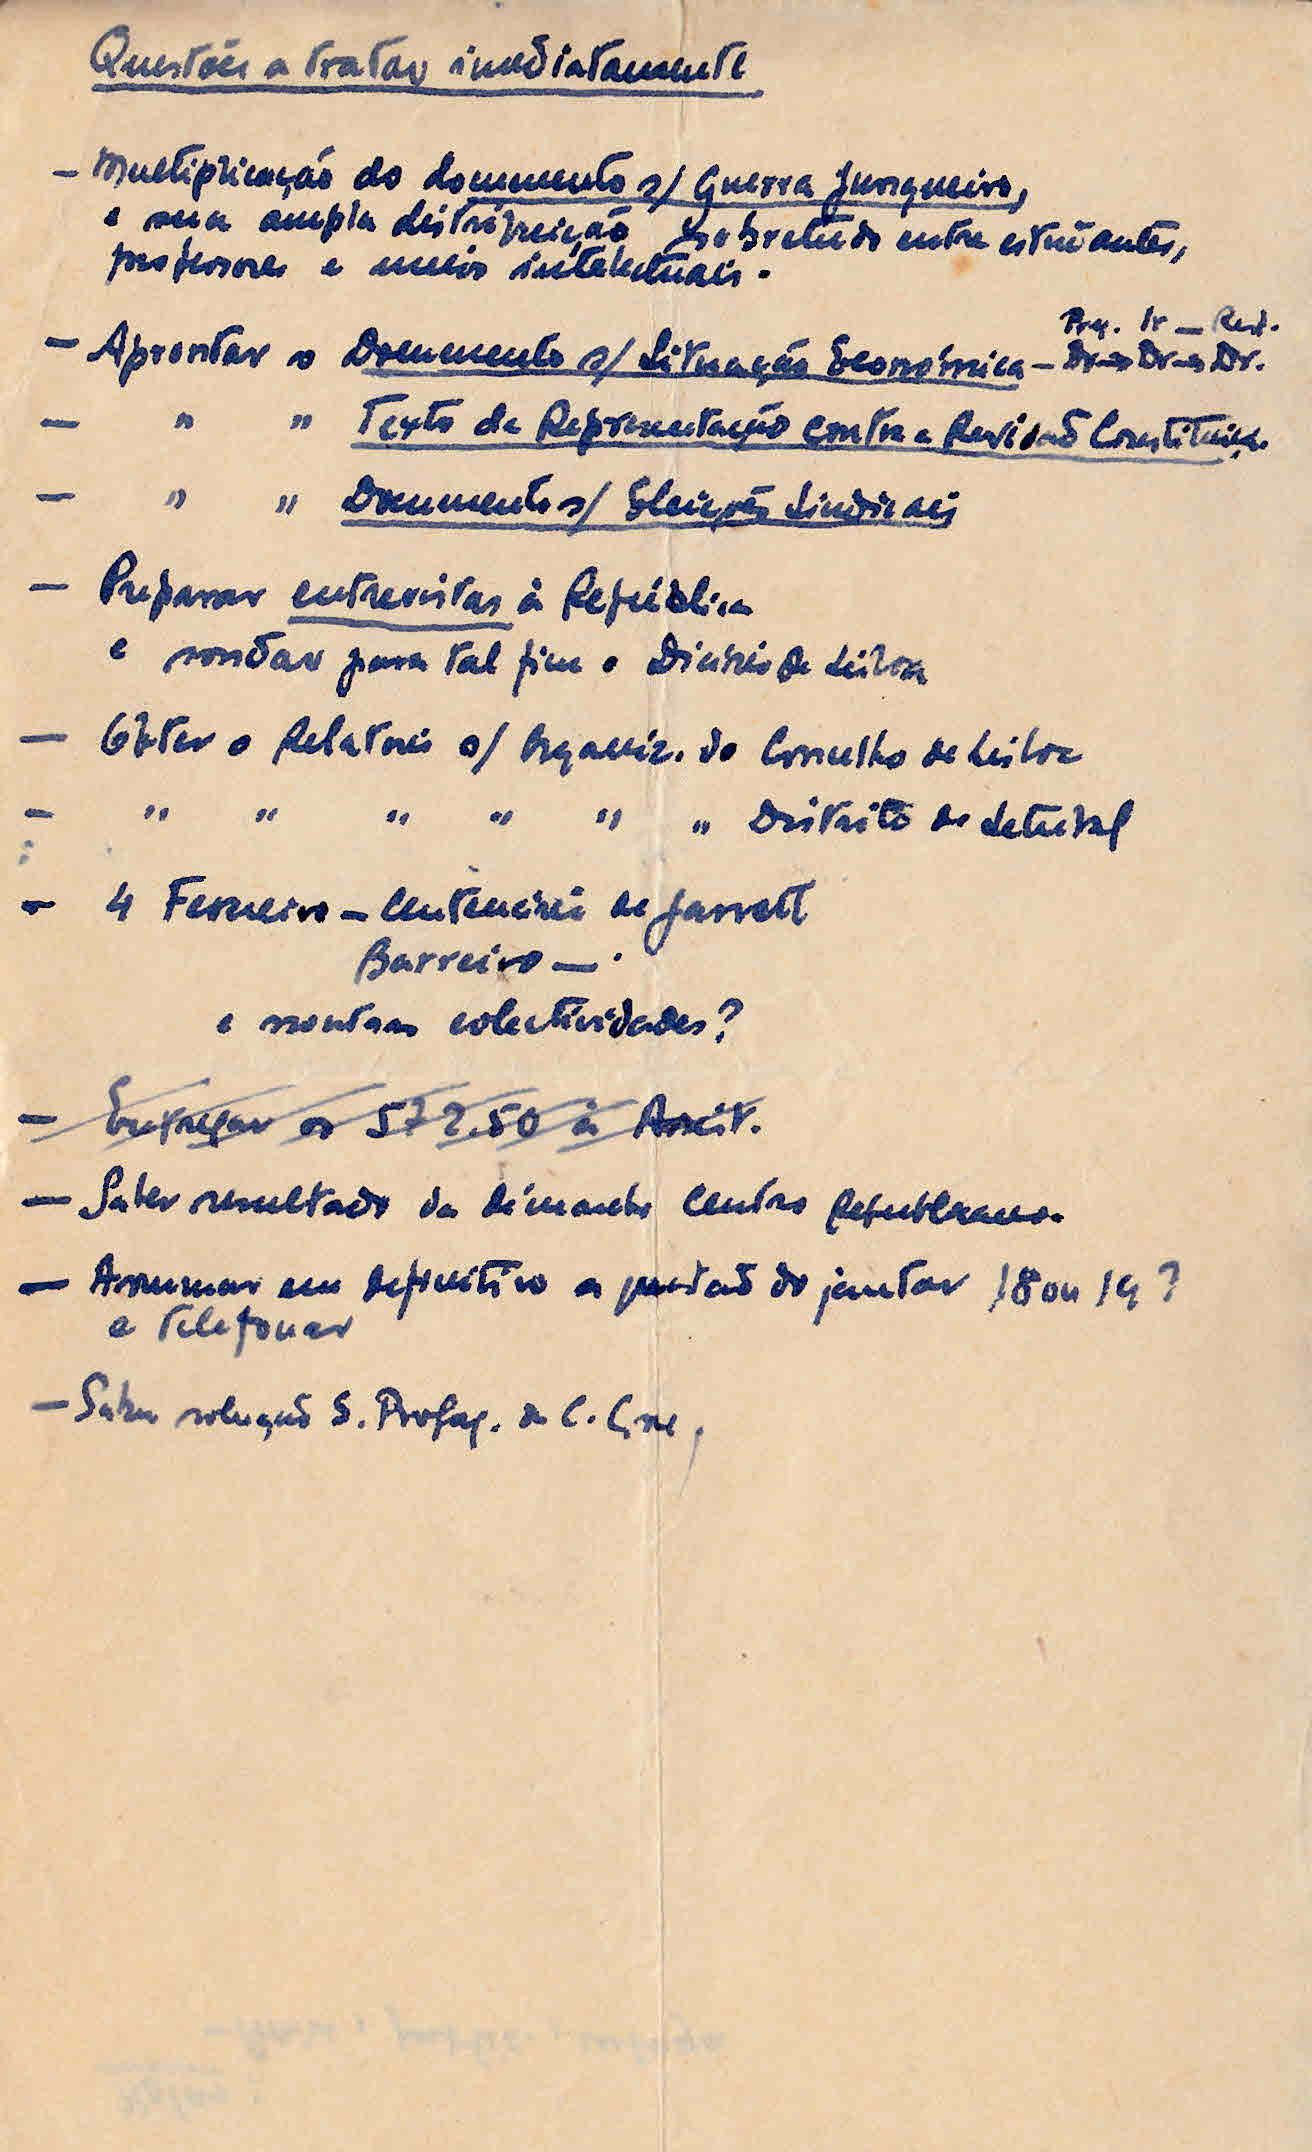 Questões a tratar imediatamente
— Multiplicação do documento s/ Guerra Junqueiro,
e sua ampla distribuição sobretudo entre estudantes,
professores e meios intelectuais.
— Aprontar o Documento s/ Situação Económica —
— " " Texto da Representação contra a Revisão Constituiç.
— " " Documento s/ Eleições Sindicais
— Preparar entrevistas à República
e sondar para tal fim o Diário de Lisboa
— Obter o Relatório s/ Organiz. do Concelho de Lisboa
— " " " " " " Distrito de Setubal
— 4 Fevereiro — Centenário de Garrett
Barreiro —
e noutras colectividades?
— Entregar os 572.50 à
— Saber resultado da démarche Centro Republicano.
— Arrumar em definitivo a questão do jantar 18 ou 19?
e telefonar
— Saber solução S. Propag. da C.